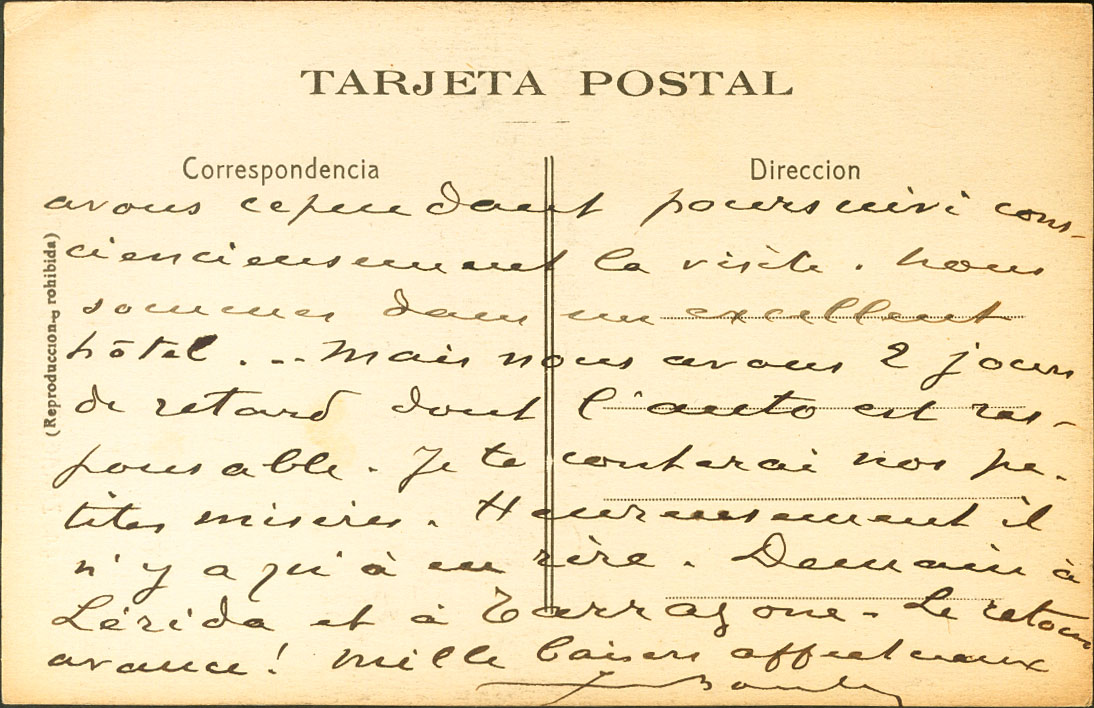 TARJETA POSTAL
Correspondencia
Direccion
(Reproduccion prohibida)
avons cependant poursuivi cons-
ciencieusement la visite. Nous
sommes dans un excellent
hôtel... Mais nous avons 2 jours
de retard dont l'auto est res-
ponsable. Je te conterai nos pe-
tites misères. Heureusement il
n'y a qu'à en rire. Demain à
Lérida et à Tarragone. Le retour
avance! Mille baisers affectueux